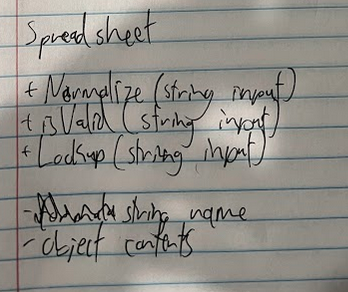 Spreadsheet
+ Normalize (string input)
+ isValid (string input)
+ Lookup (string input)
- string name
- object contents